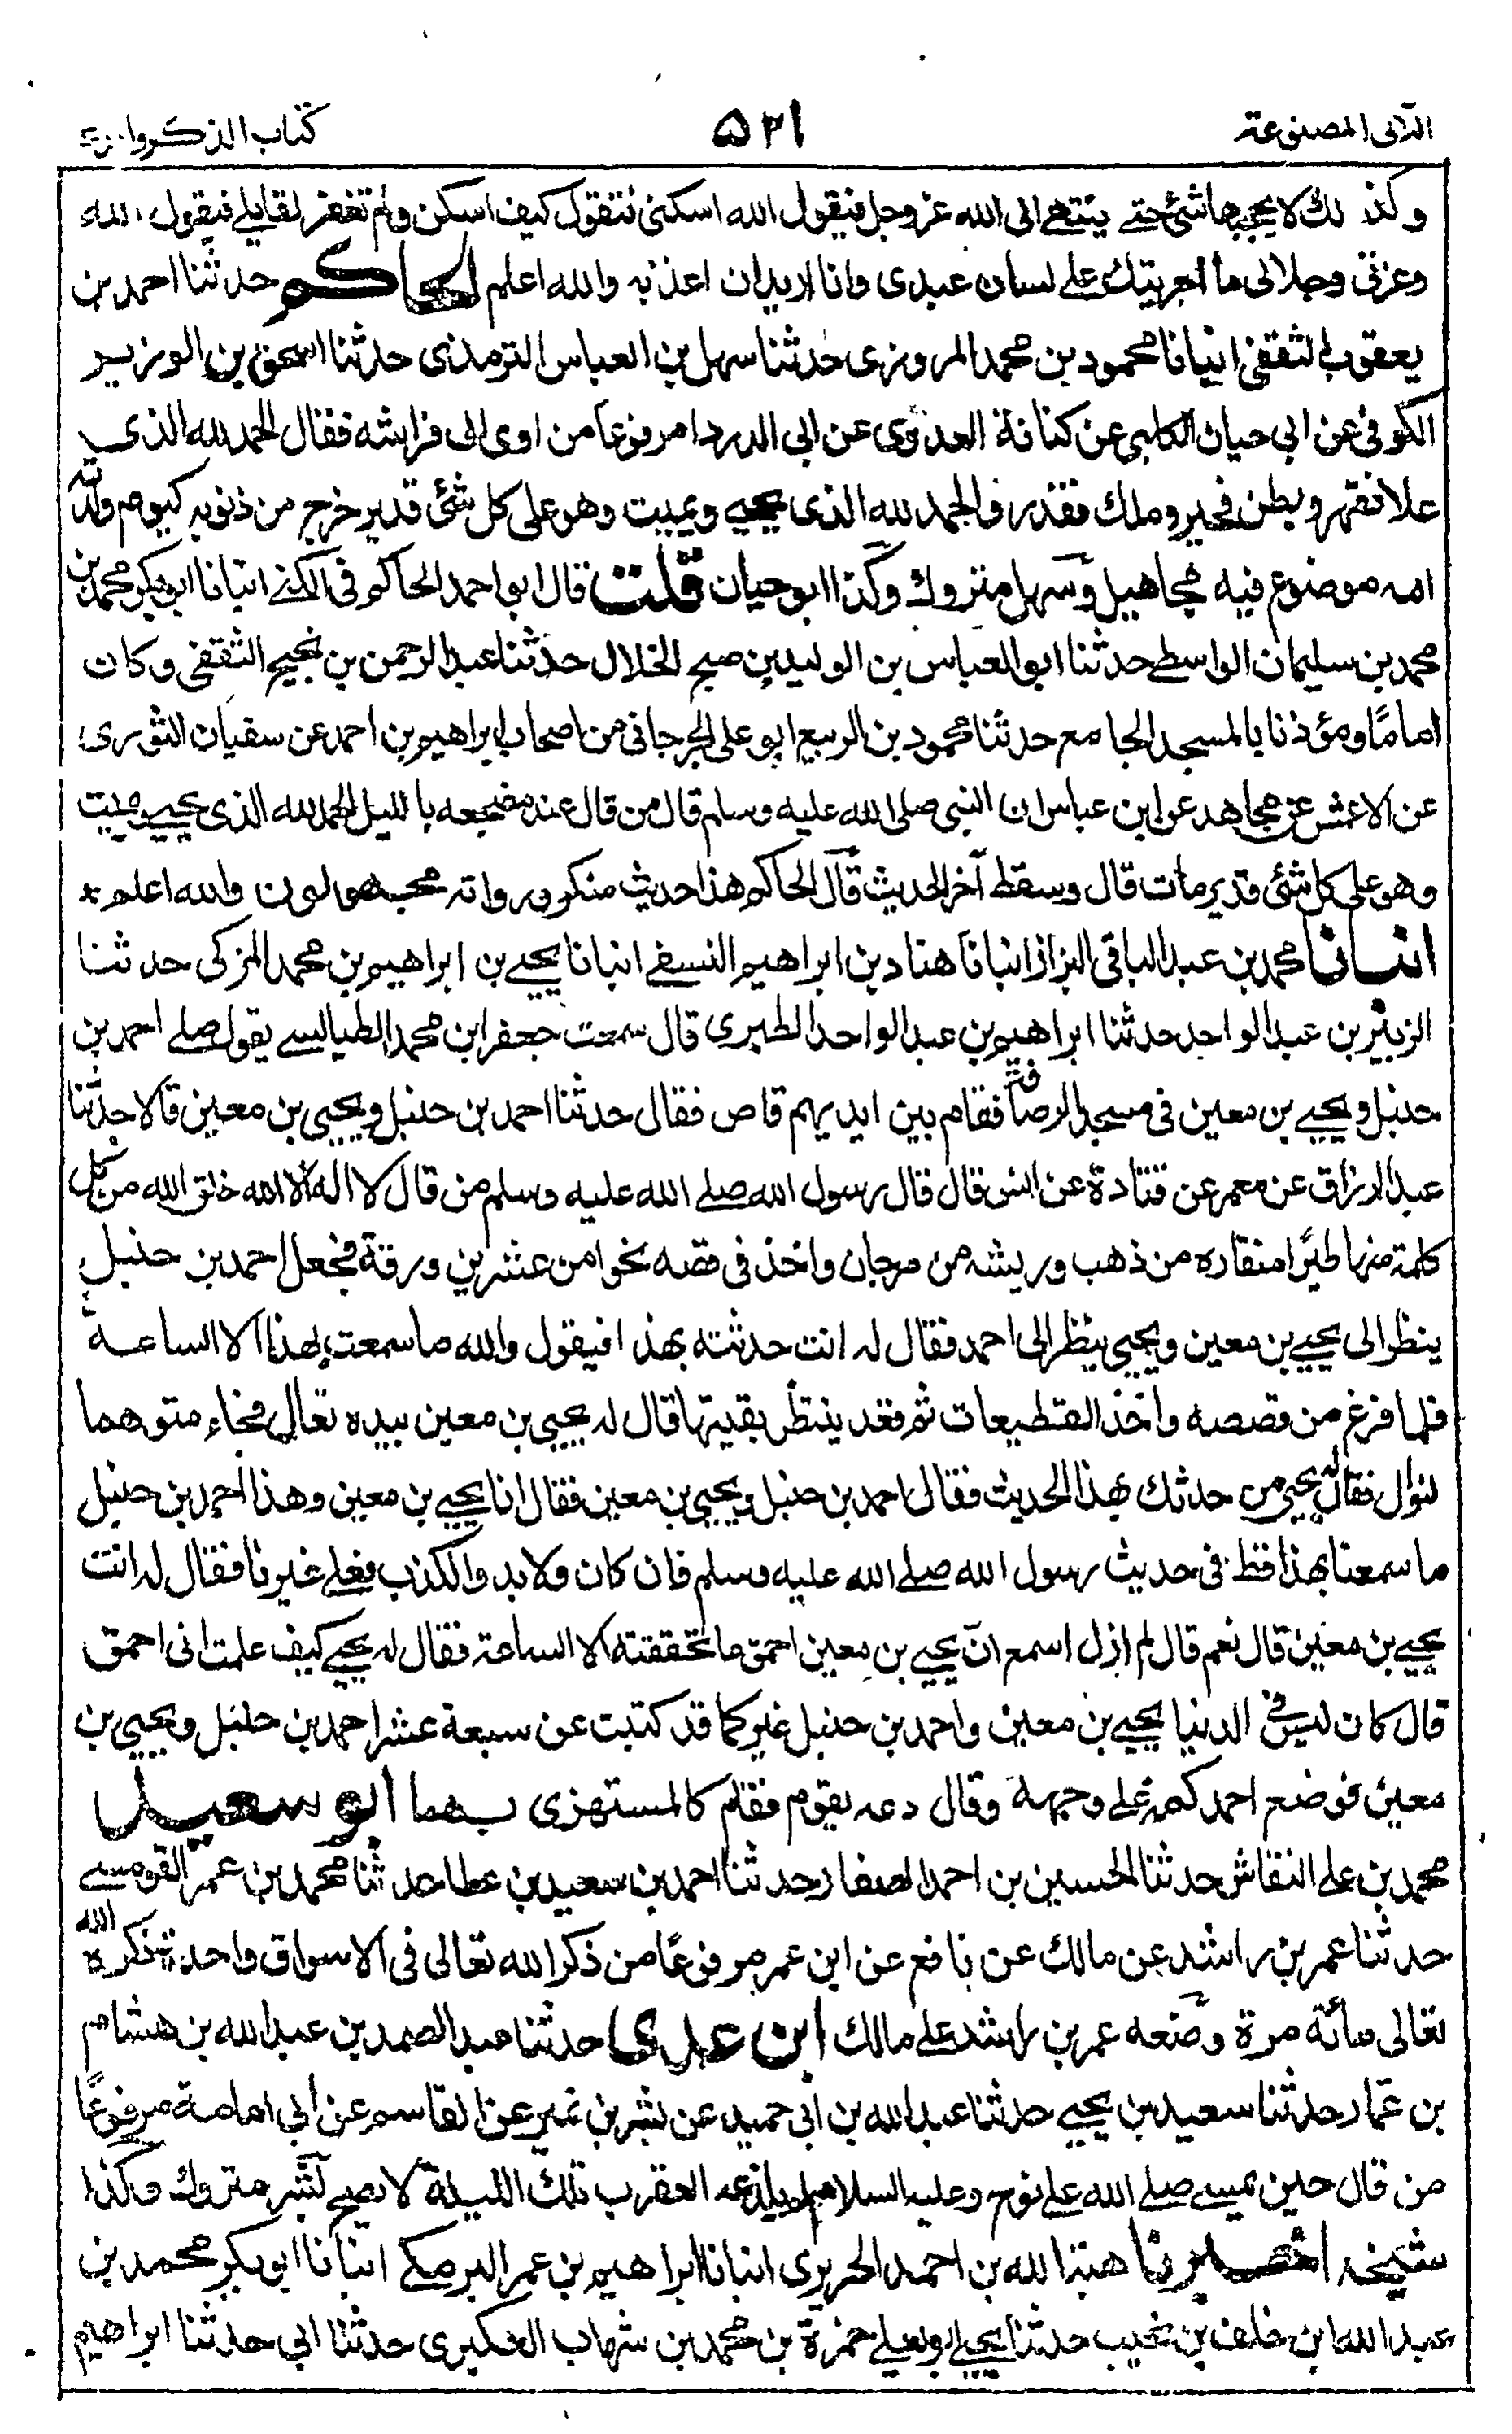 اللآلى المصنوعة
٥٢١
كتاب الذكر والدعاء
وكذلك لا يحجبها شئ حتے ينتهے الى الله عزوجل فيقول الله اسكنى فتقول كيف اسكن ولم تغفر لقايلے فيقول الله
وعزتى وجلالى ما اجريتك علے لسان عبدى وانا اريد ان اعذبه والله اعلم الحاكم حدثنا احمد بن
يعقوب الثقفى انبانا محمود بن محمد المروزى حدثنا سهل بن العباس الترمذى حدثنا اسحق بن الوزير
الكوفى عن ابى حيان الكلبى عن كنانة العدوى عن ابى الدرداء مرفوعا من اوى الى فراشه فقال الحمد لله الذى
علا فقهر وبطن فخبر وملك فقدر والحمد لله الذى يحيے ويميت وهو على كل شئ قدير خرج من ذنوبه كيوم ولدته
امه موضوع فيه مجاهيل وسهل متروك وكذا ابو حيان قلت قال ابو احمد الحاكم فى الكنے انبانا ابو بكر محمد بن
محمد بن سليمان الواسطے حدثنا ابو العباس بن الوليد بن صبح الخلال حدثنا عبد الرحمن بن نجيح الثقفى وكان
اماما ومؤذنا بالمسجد الجامع حدثنا محمود بن الربيع ابو على الجرجانى من اصحاب ابراهيم بن احمد عن سفيان الثورى
عن الاعمش عن مجاهد عن ابن عباس ان النبى صلى الله عليه وسلم قال من قال عند مضجعه بالليل الحمد لله الذى يحيے ويميت
وهو على كل شئ قدير مات قال وسقط آخر الحديث قال الحاكم هذا حديث منكر ورواته مجهولون والله اعلم *
انبانا محمد بن عبد الباقى البزاز انبانا هناد بن ابراهيم النسفے انبانا يحيے بن ابراهيم بن محمد المزكى حدثنا
الزبير بن عبد الواحد حدثنا ابراهيم بن عبد الواحد الطبرى قال سمعت جعفر ابن محمد الطيالسے يقول صلے احمد بن
حنبل ويحيے بن معين فى مسجد الرصافة فقام بين ايديهم قاص فقال حدثنا احمد بن حنبل ويحيى بن معين قالا حدثنا
عبد الرزاق عن معمر عن قتادة عن انس قال قال رسول الله صلے الله عليه وسلم من قال لا اله الا الله خلق الله من كل
كلمة منها طيرا منقاره من ذهب وريشه من مرجان واخذ فى قصه نحوا من عشرين ورقة فجعل احمد بن حنبل
ينظر الى يحيے بن معين ويحيى ينظر الى احمد فقال له انت حدثته بهذا فيقول والله ما سمعت بهذا الا الساعة
فلما فرغ من قصصه واخذ القطيعات ثم قعد ينتظر بقيتها قال له يحيى بن معين بيده تعالى فجاء متوهما
لنوال فقال له يحيى من حدثك بهذا الحديث فقال احمد بن حنبل ويحيى بن معين فقال انا يحيے بن معين وهذا احمد بن حنبل
ما سمعنا بهذا قط فى حديث رسول الله صلے الله عليه وسلم فان كان ولابد والكذب فعلے غيرنا فقال له انت
يحيے بن معين قال نعم قال لم ازل اسمع ان يحيے بن معين احمق ما تحققته الا الساعة فقال له يحيے كيف علمت انى احمق
قال كان ليس فى الدنيا يحيے بن معين واحمد بن حنبل غيركما قد كتبت عن سبعة عشر احمد بن حنبل ويحيى بن
معين فوضع احمد كمه على وجهه وقال دعه يقوم فقام كالمستهزى بهما ابو سعيد
محمد بن على النقاش حدثنا الحسين بن احمد الصفار حدثنا احمد بن سعيد بن عطا حدثنا محمد بن عمر القومسے
حدثنا عمر بن راشد عن مالك عن نافع عن ابن عمر مرفوعا من ذكر الله تعالى فى الاسواق واحدة ذكره الله
تعالى مائة مرة وضعه عمر بن راشد علے مالك ابن عدى حدثنا عبد الصمد بن عبد الله بن هشام
بن عمار حدثنا سعيد بن يحيے حدثنا عبد الله بن ابى حميد عن بشر بن نمير عن القاسم عن ابى امامة مرفوعا
من قال حين يمسے صلے الله علے نوح وعليه السلام لم يلذعه العقرب تلك الليلة لا يصح بشر متروك وكذا
شيخه اخبرنا هبة الله بن احمد الحريرى انبانا ابراهيم بن عمر البرمكے انبانا ابو بكر محمد بن
عبد الله ابن خلف بن نجيب حدثنا ابو يعلے حمزة بن محمد بن شهاب العكبرى حدثنا ابى حدثنا ابراهيم